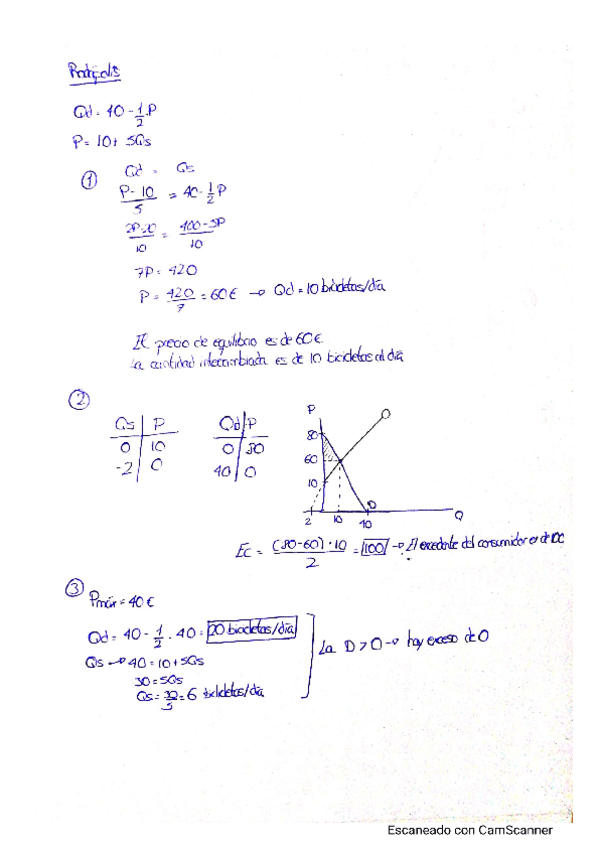 Qd = 40 - 1/2 P
P = 10 + 5Qs
① Qd = Qs
P - 10 / 5 = 40 - 1/2 P
2P - 20 / 10 = 400 - 5P / 10
7P = 420
P = 420/7 = 60€ → Qd = 10 bicicletas/día
El precio de equilibrio es de 60€
La cantidad intercambiada es de 10 bicicletas al día
②
Qs | P
0 | 10
-2 | 0
Qd | P
0 | 80
40 | 0
P
O
80
60
10
D
2 10 40
Q
Ec = (80-60)·10 / 2 = 100 → El excedente del consumidor es de 100
③ Pmáx = 40 €
Qd = 40 - 1/2 · 40 = 20 bicicletas/día
Qs → 40 = 10 + 5Qs
30 = 5Qs
Qs = 30/5 = 6 bicicletas/día
La D > O → hay exceso de O
Escaneado con CamScanner